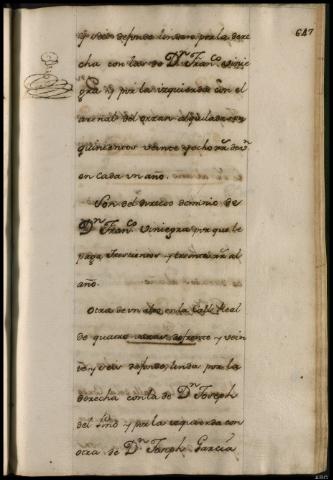 647
y seis defondo lindan por la dere
cha con las de Dn. Franco. Vinie
gra, y por la izquierda con el
arenal del arran alquiladas en
quinientos veinte y ocho rs. de vn
en cada un año.
Son del directo dominio de
Dn. Franco. Viniegra por que le
paga trescientos y treinta rs. al
año.
Otra de un alto en la Calle Real
de quatro varas defrente y vein
te y seis defondo, linda por la
derecha con la de Dn. Joseph
del y por la izquierda con
otra de Dn. Joseph Garcia